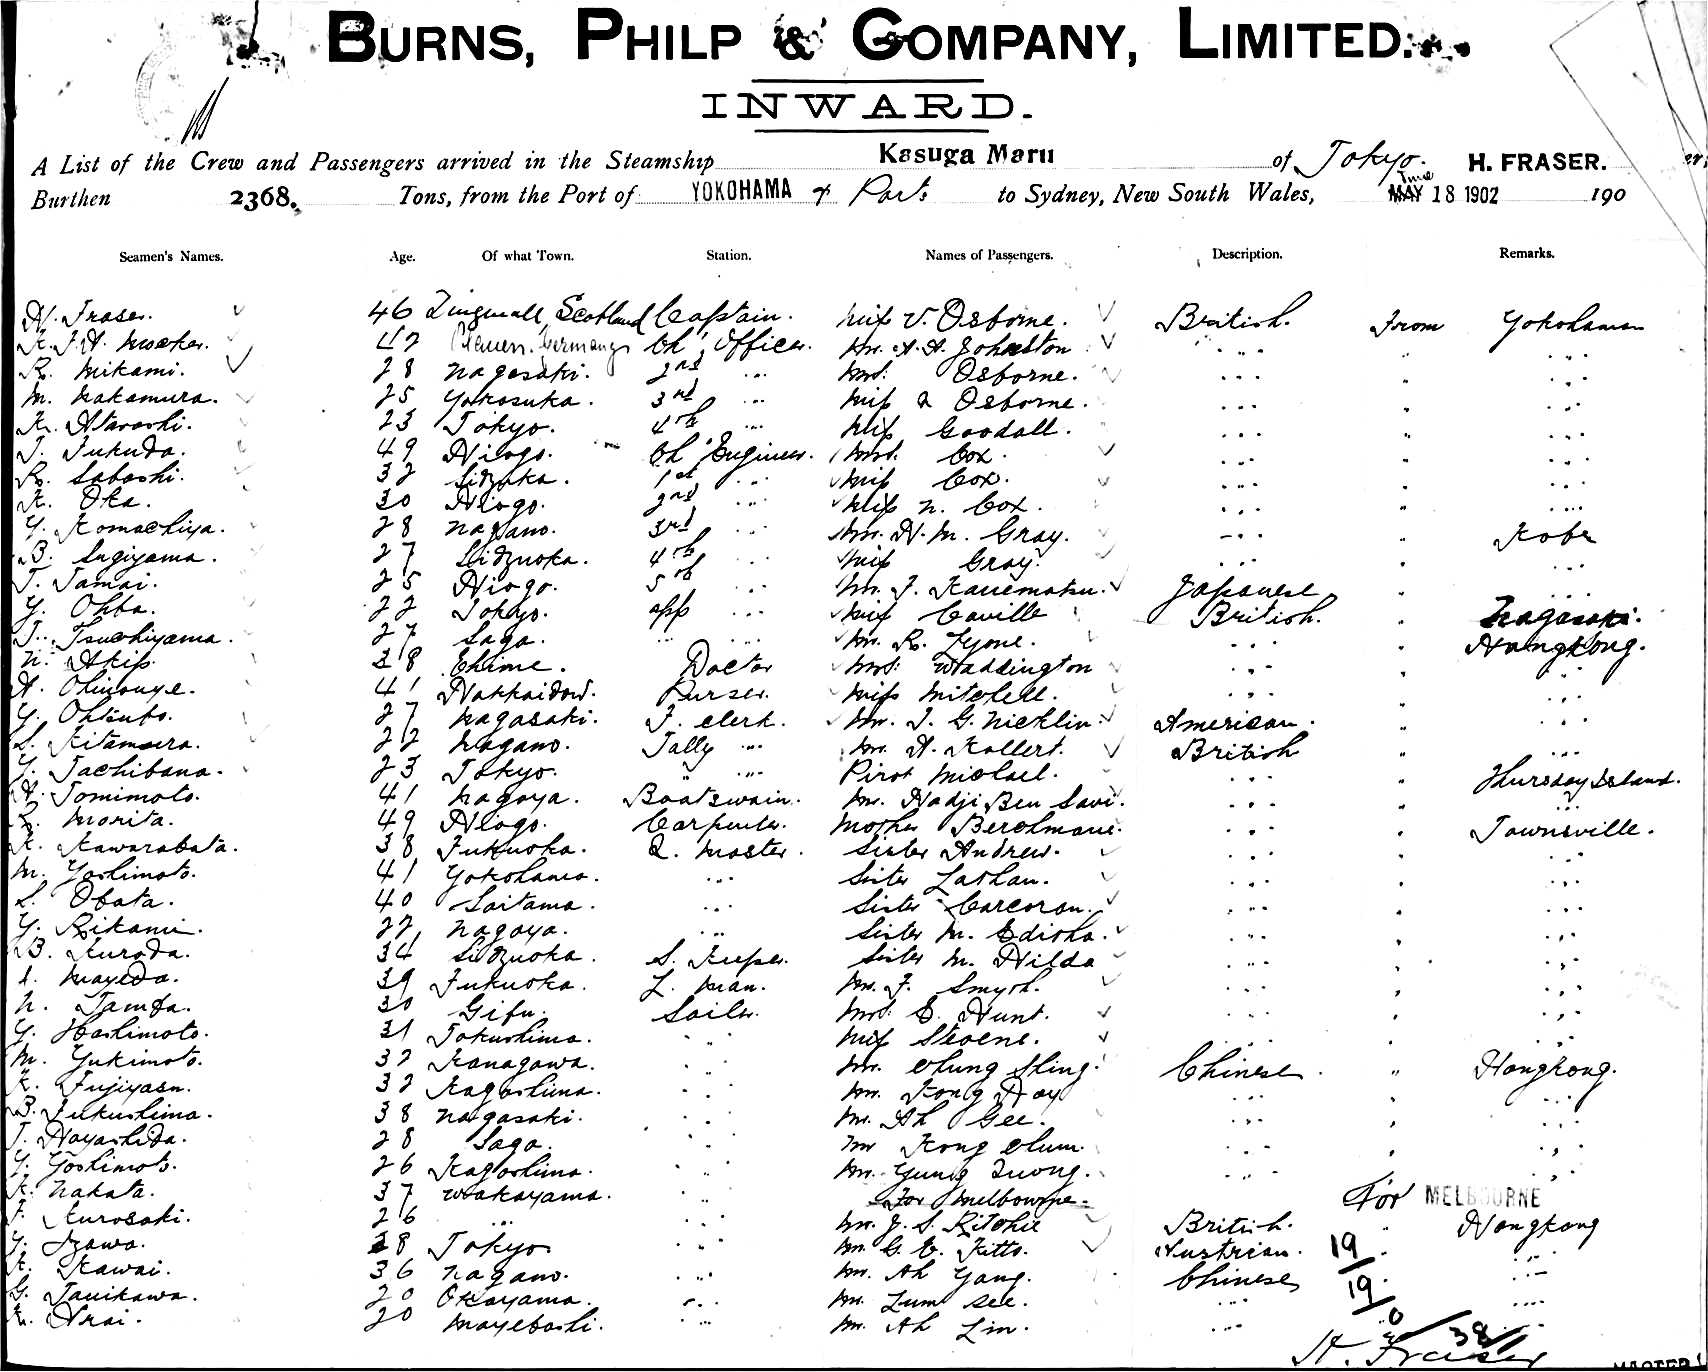 BURNS, PHILP & COMPANY, LIMITED.
INWARD.
A List of the Crew and Passengers arrived in the Steamship Kasuga Maru of Tokyo. H. FRASER.
Burthen 2368. Tons, from the Port of YOKOHAMA & Ports to Sydney, New South Wales, MAY June 18 1902 190
Seamen's Names. Age. Of what Town. Station. Names of Passengers. Description. Remarks.
H. Fraser. 46 Dingwall Scotland Captain. Miss V. Osborne. British. From Yokohama
K. J. H. 42 Germany Ch. Officer. Mr. A. H. Johnston
R. Mikami. 28 Nagasaki. 2nd Mrs. Osborne.
M. Nakamura. 25 Yokosuka. 3rd Miss Osborne.
K. Atarashi. 23 Tokyo. 4th Miss Goodall.
J. Fukuda. 49 Hiogo. Ch. Engineer. Mrs. Cox.
R. Sabashi. 32 1st Miss Cox.
K. Oka. 30 Hiogo. 2nd Miss N. Cox.
Y. Komachiya. 28 Nagano. 3rd Mr. H. M. Gray. Kobe
B. Sugiyama. 27 Sidzuoka. 4th Miss Gray.
T. Tamai. 25 Hiogo. 5th Mr. F. Kanematsu. Japanese
Y. Ohba. 22 Tokyo. App Miss Caville British. Nagasaki.
T. Tsuchiyama. 27 Saga. Mr. R. Lyone. Hongkong.
N. 38 Ehime. Doctor Mrs. Waddington
H. Ohinouye. 41 Hokkaidow. Purser. Miss Mitchell.
Y. Ohkubo. 27 Nagasaki. F. Clerk. Mr. J. G. Nicklin. American.
S. Kitamura. 22 Nagano. Tally Mr. H. Kollert. British
Y. Tachibana. 23 Tokyo. Pirot Michael. Thursday Island.
H. Tomimoto. 41 Nagoya. Boatswain. Mr. Hadji Ben Savi.
Morita. 49 Hiogo. Carpenter. Mother Berchmans. Townsville.
K. Kawarabata. 38 Fukuoka. Q. Master. Sister Andrew.
M. Yoshimoto. 41 Yokohama. Sister Lathan.
S. Obata. 40 Saitama. Sister Corcoran.
Y. Rikami. 22 Nagoya. Sister M.
B. Kuroda. 34 Sidzuoka. S. Keeper. Sister M. Hilda
Mayeda. 39 Fukuoka. L. Man. Mr. F. Smyth.
N. 30 Gifu. Sailor. Mrs. E. Hunt.
Y. Hashimoto. 31 Tokushima. Miss Stevens.
M. Yukimoto. 32 Kanagawa. Mr. Chung Shing. Chinese Hongkong.
K. Fujiyasu. 32 Kagoshima. Mr. Kong Hoy
B. Fukushima. 38 Nagasaki. Mr. Ah Gee.
T. Hayashida. 28 Saga. Mr Kong Chum
Y. Yoshimoto. 26 Kagoshima. Mr. Yung Quong.
K. Nakata. 37 Wakayama. For Melbourne For MELBOURNE
Kurosaki. 26 Mr. J. S. Ritchie British. Hongkong
Y. Izawa. 28 Tokyo Mr. G. E. Kitts. Austrian. 19
K. Kawai. 36 Nagano. Mr. Ah Yang. Chinese 19
G. Tanikawa. 20 Okayama. Mr. Lum See.
K. Arai. 20 Mayebashi. Mr. Ah Lin. 38
H. Fraser
MASTER